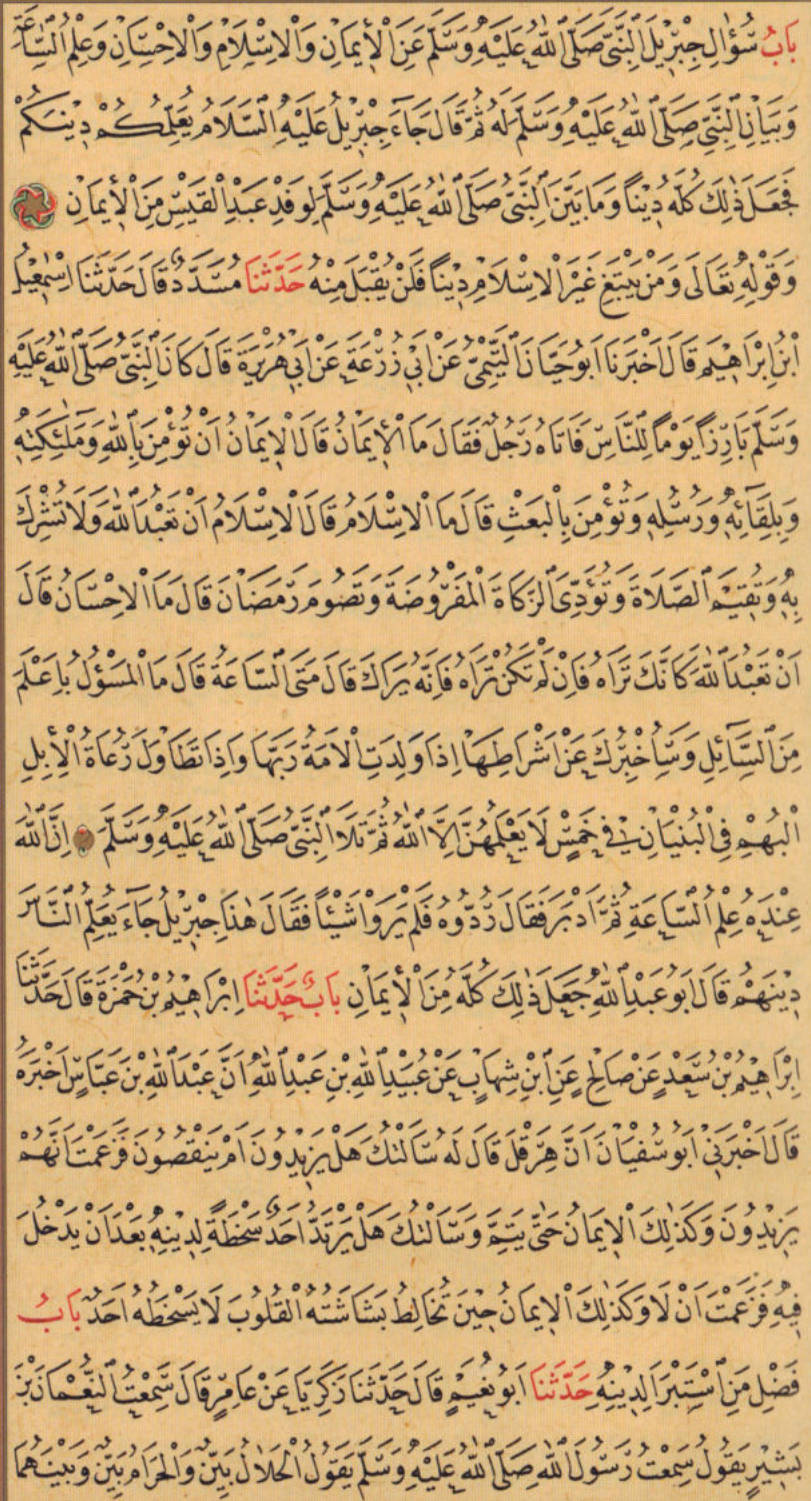 بَابُ سُؤَالِ جِبْرِيلَ النَّبِيَّ صَلَّى اللهُ عَلَيْهِ وَسَلَّمَ عَنِ الْإِيمَانِ وَالْاِسْلَامِ وَالْاِحْسَانِ وَعِلْمِ السَّاعَةِ
وَبَيَانِ النَّبِيِّ صَلَّى اللهُ عَلَيْهِ وَسَلَّمَ لَهُ ثُمَّ قَالَ جَاءَ جِبْرِيلُ عَلَيْهِ السَّلَامُ يُعَلِّمُكُمْ دِينَكُمْ
فَجَعَلَ ذٰلِكَ كُلَّهُ دِينًا وَمَا بَيَّنَ النَّبِيُّ صَلَّى اللهُ عَلَيْهِ وَسَلَّمَ لِوَفْدِ عَبْدِ الْقَيْسِ مِنَ الْإِيمَانِ
وَقَوْلِهِ تَعَالَى وَمَنْ يَبْتَغِ غَيْرَ الْاِسْلَامِ دِينًا فَلَنْ يُقْبَلَ مِنْهُ حَدَّثَنَا مُسَدَّدٌ قَالَ حَدَّثَنَا اِسْمٰعِيلُ
ابْنُ اِبْرَاهِيمَ قَالَ اَخْبَرَنَا اَبُو حَيَّانَ التَّيْمِيُّ عَنْ اَبِي زُرْعَةَ عَنْ اَبِي هُرَيْرَةَ قَالَ كَانَ النَّبِيُّ صَلَّى اللهُ عَلَيْهِ
وَسَلَّمَ بَارِزًا يَوْمًا لِلنَّاسِ فَاَتَاهُ رَجُلٌ فَقَالَ مَا الْإِيمَانُ قَالَ الْاِيمَانُ اَنْ تُؤْمِنَ بِاللهِ وَمَلٰئِكَتِهِ
وَبِلِقَائِهِ وَرُسُلِهِ وَتُؤْمِنَ بِالْبَعْثِ قَالَ مَا الْاِسْلَامُ قَالَ الْاِسْلَامُ اَنْ تَعْبُدَ اللهَ وَلَا تُشْرِكَ
بِهِ وَتُقِيمَ الصَّلَاةَ وَتُؤَدِّيَ الزَّكَاةَ الْمَفْرُوضَةَ وَتَصُومَ رَمَضَانَ قَالَ مَا الْاِحْسَانُ قَالَ
اَنْ تَعْبُدَ اللهَ كَاَنَّكَ تَرَاهُ فَاِنْ لَمْ تَكُنْ تَرَاهُ فَاِنَّهُ يَرَاكَ قَالَ مَتَى السَّاعَةُ قَالَ مَا الْمَسْؤُلُ بِاَعْلَمَ
مِنَ السَّائِلِ وَسَاُخْبِرُكَ عَنْ اَشْرَاطِهَا اِذَا وَلَدَتِ الْاَمَةُ رَبَّهَا وَاِذَا تَطَاوَلَ رُعَاةُ الْاِبِلِ
الْبُهْمِ فِي الْبُنْيَانِ فِي خَمْسٍ لَا يَعْلَمُهُنَّ اِلَّا اللهُ ثُمَّ تَلَا النَّبِيُّ صَلَّى اللهُ عَلَيْهِ وَسَلَّمَ اِنَّ اللهَ
عِنْدَهُ عِلْمُ السَّاعَةِ ثُمَّ اَدْبَرَ فَقَالَ رُدُّوهُ فَلَمْ يَرَوْا شَيْئًا فَقَالَ هٰذَا جِبْرِيلُ جَاءَ يُعَلِّمُ النَّاسَ
دِينَهُمْ قَالَ اَبُو عَبْدِ اللهِ جَعَلَ ذٰلِكَ كُلَّهُ مِنَ الْإِيمَانِ بَابٌ حَدَّثَنَا اِبْرَاهِيمُ بْنُ حَمْزَةَ قَالَ حَدَّثَنَا
اِبْرَاهِيمُ بْنُ سَعْدٍ عَنْ صَالِحٍ عَنِ ابْنِ شِهَابٍ عَنْ عُبَيْدِ اللهِ بْنِ عَبْدِ اللهِ اَنَّ عَبْدَ اللهِ بْنَ عَبَّاسٍ اَخْبَرَهُ
قَالَ اَخْبَرَنِي اَبُو سُفْيَانَ اَنَّ هِرَقْلَ قَالَ لَهُ سَاَلْتُكَ هَلْ يَزِيدُونَ اَمْ يَنْقُصُونَ فَزَعَمْتَ اَنَّهُمْ
يَزِيدُونَ وَكَذٰلِكَ الْاِيمَانُ حَتَّى يَتِمَّ وَسَاَلْتُكَ هَلْ يَرْتَدُّ اَحَدٌ سَخْطَةً لِدِينِهِ بَعْدَ اَنْ يَدْخُلَ
فِيهِ فَزَعَمْتَ اَنْ لَا وَكَذٰلِكَ الْاِيمَانُ حِينَ تُخَالِطُ بَشَاشَتُهُ الْقُلُوبَ لَا يَسْخَطُهُ اَحَدٌ بَابُ
فَضْلِ مَنِ اسْتَبْرَاَ لِدِينِهِ حَدَّثَنَا اَبُو نُعَيْمٍ قَالَ حَدَّثَنَا زَكَرِيَّا عَنْ عَامِرٍ قَالَ سَمِعْتُ النُّعْمَانَ بْنَ
بَشِيرٍ يَقُولُ سَمِعْتُ رَسُولَ اللهِ صَلَّى اللهُ عَلَيْهِ وَسَلَّمَ يَقُولُ الْحَلَالُ بَيِّنٌ وَالْحَرَامُ بَيِّنٌ وَبَيْنَهُمَا